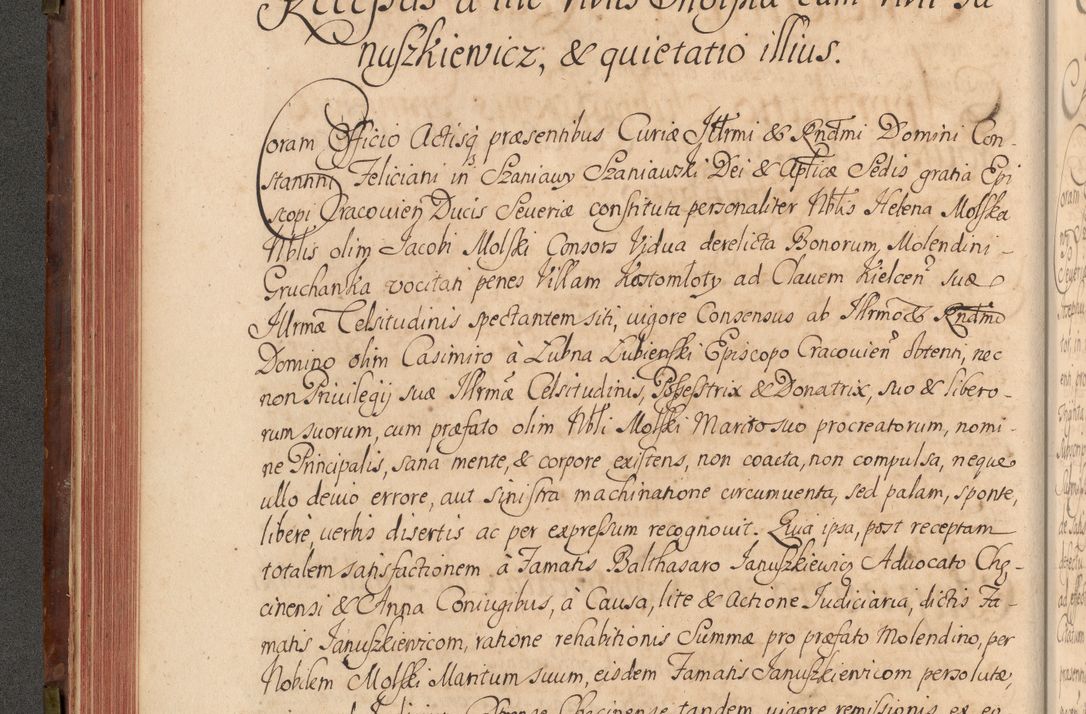 nuszkiewicz, & quietatio illius.
Coram Officio Actisq3 præsentibus Curiæ Illrmi & Rndmi Domini Con-
stantini Feliciani in Szaniawy Szaniawski Dei & Aplicæ Sedis gratia Epi
scopi Cracovien Ducis Severiæ constituta personaliter Nblis Helena Molska
Nblis olim Jacobi Molski Consors Vidua derelicta Bonorum, Molendini -
Gruchanka vocitati penes Villam Kostomłoty ad Clavem Kielcen suæ
Illrmæ Celsitudinis spectantem siti, vigore Consensus ab Illrmo & Rndmo
Domino olim Casimiro à Lubna Lubienski Episcopo Cracovien obtenti, nec
non Privilegij suæ Illrmæ Celsitudinis, Possestrix & Donatrix, suo & libero-
rum suorum, cum præfato olim Nbli Molski Marito suo procreatorum, nomi-
ne Principalis, sana mente, & corpore existens, non coacta, non compulsa, neque
ullo devio errore, aut sinistra machinatione circumventa, sed palam, sponte,
liberè, verbis disertis ac per expressum recognovit. Quia ipsa, post receptam
totalem satisfactionem à Famatis Balthasaro Januszkiewicz Advocato Chę-
cinensi & Anna Coniugibus, à Causa, lite & actione Judiciaria, dictis Fa-
matis Januszkiewicom, ratione rehabitionis Summæ pro præfato Molendino, per
Nobilem Molski Maritum suum, eisdem Famatis Januszkiewicom persolutæ,